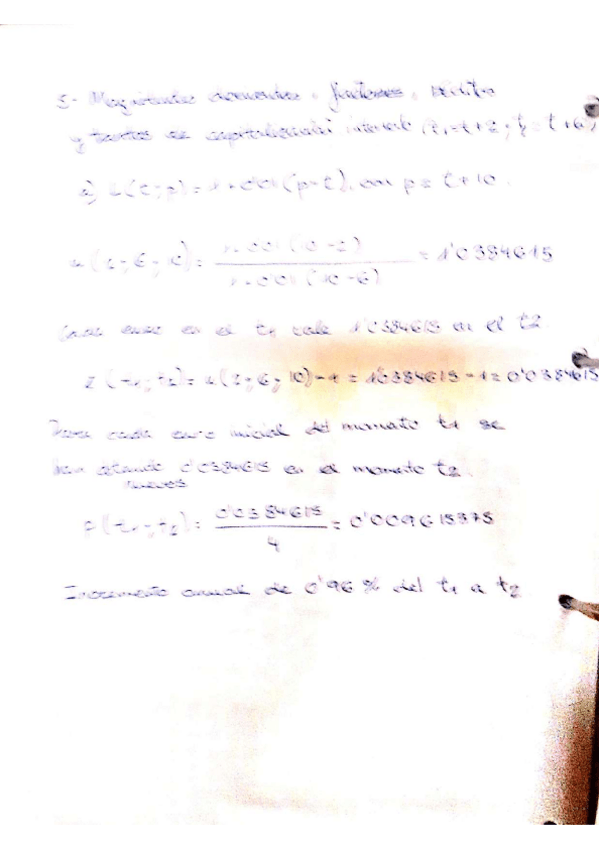 5.- Magnitudes derivadas: factores, rédito
y tantos de capitalización intervalo (t₁=t+2; t₂=t+6)
a) L(t;p)= 1+0'01(p-t), con p= t+10.
u(2;6;10)= 1+0'01(10-2) / 1+0'01(10-6) = 1'0384615
Cada euro en el t₁ vale 1'0384615 en el t2.
i(t₁;t₂)= u(2;6;10)-1 = 1'0384615-1=0'0384615
Para cada euro inicial del momento t₁ se
0'0384615 en el momento t₂.
nuevos
ρ(t₁;t₂)= 0'0384615 / 4 = 0'009615375
Incremento anual de 0'96% del t₁ a t₂